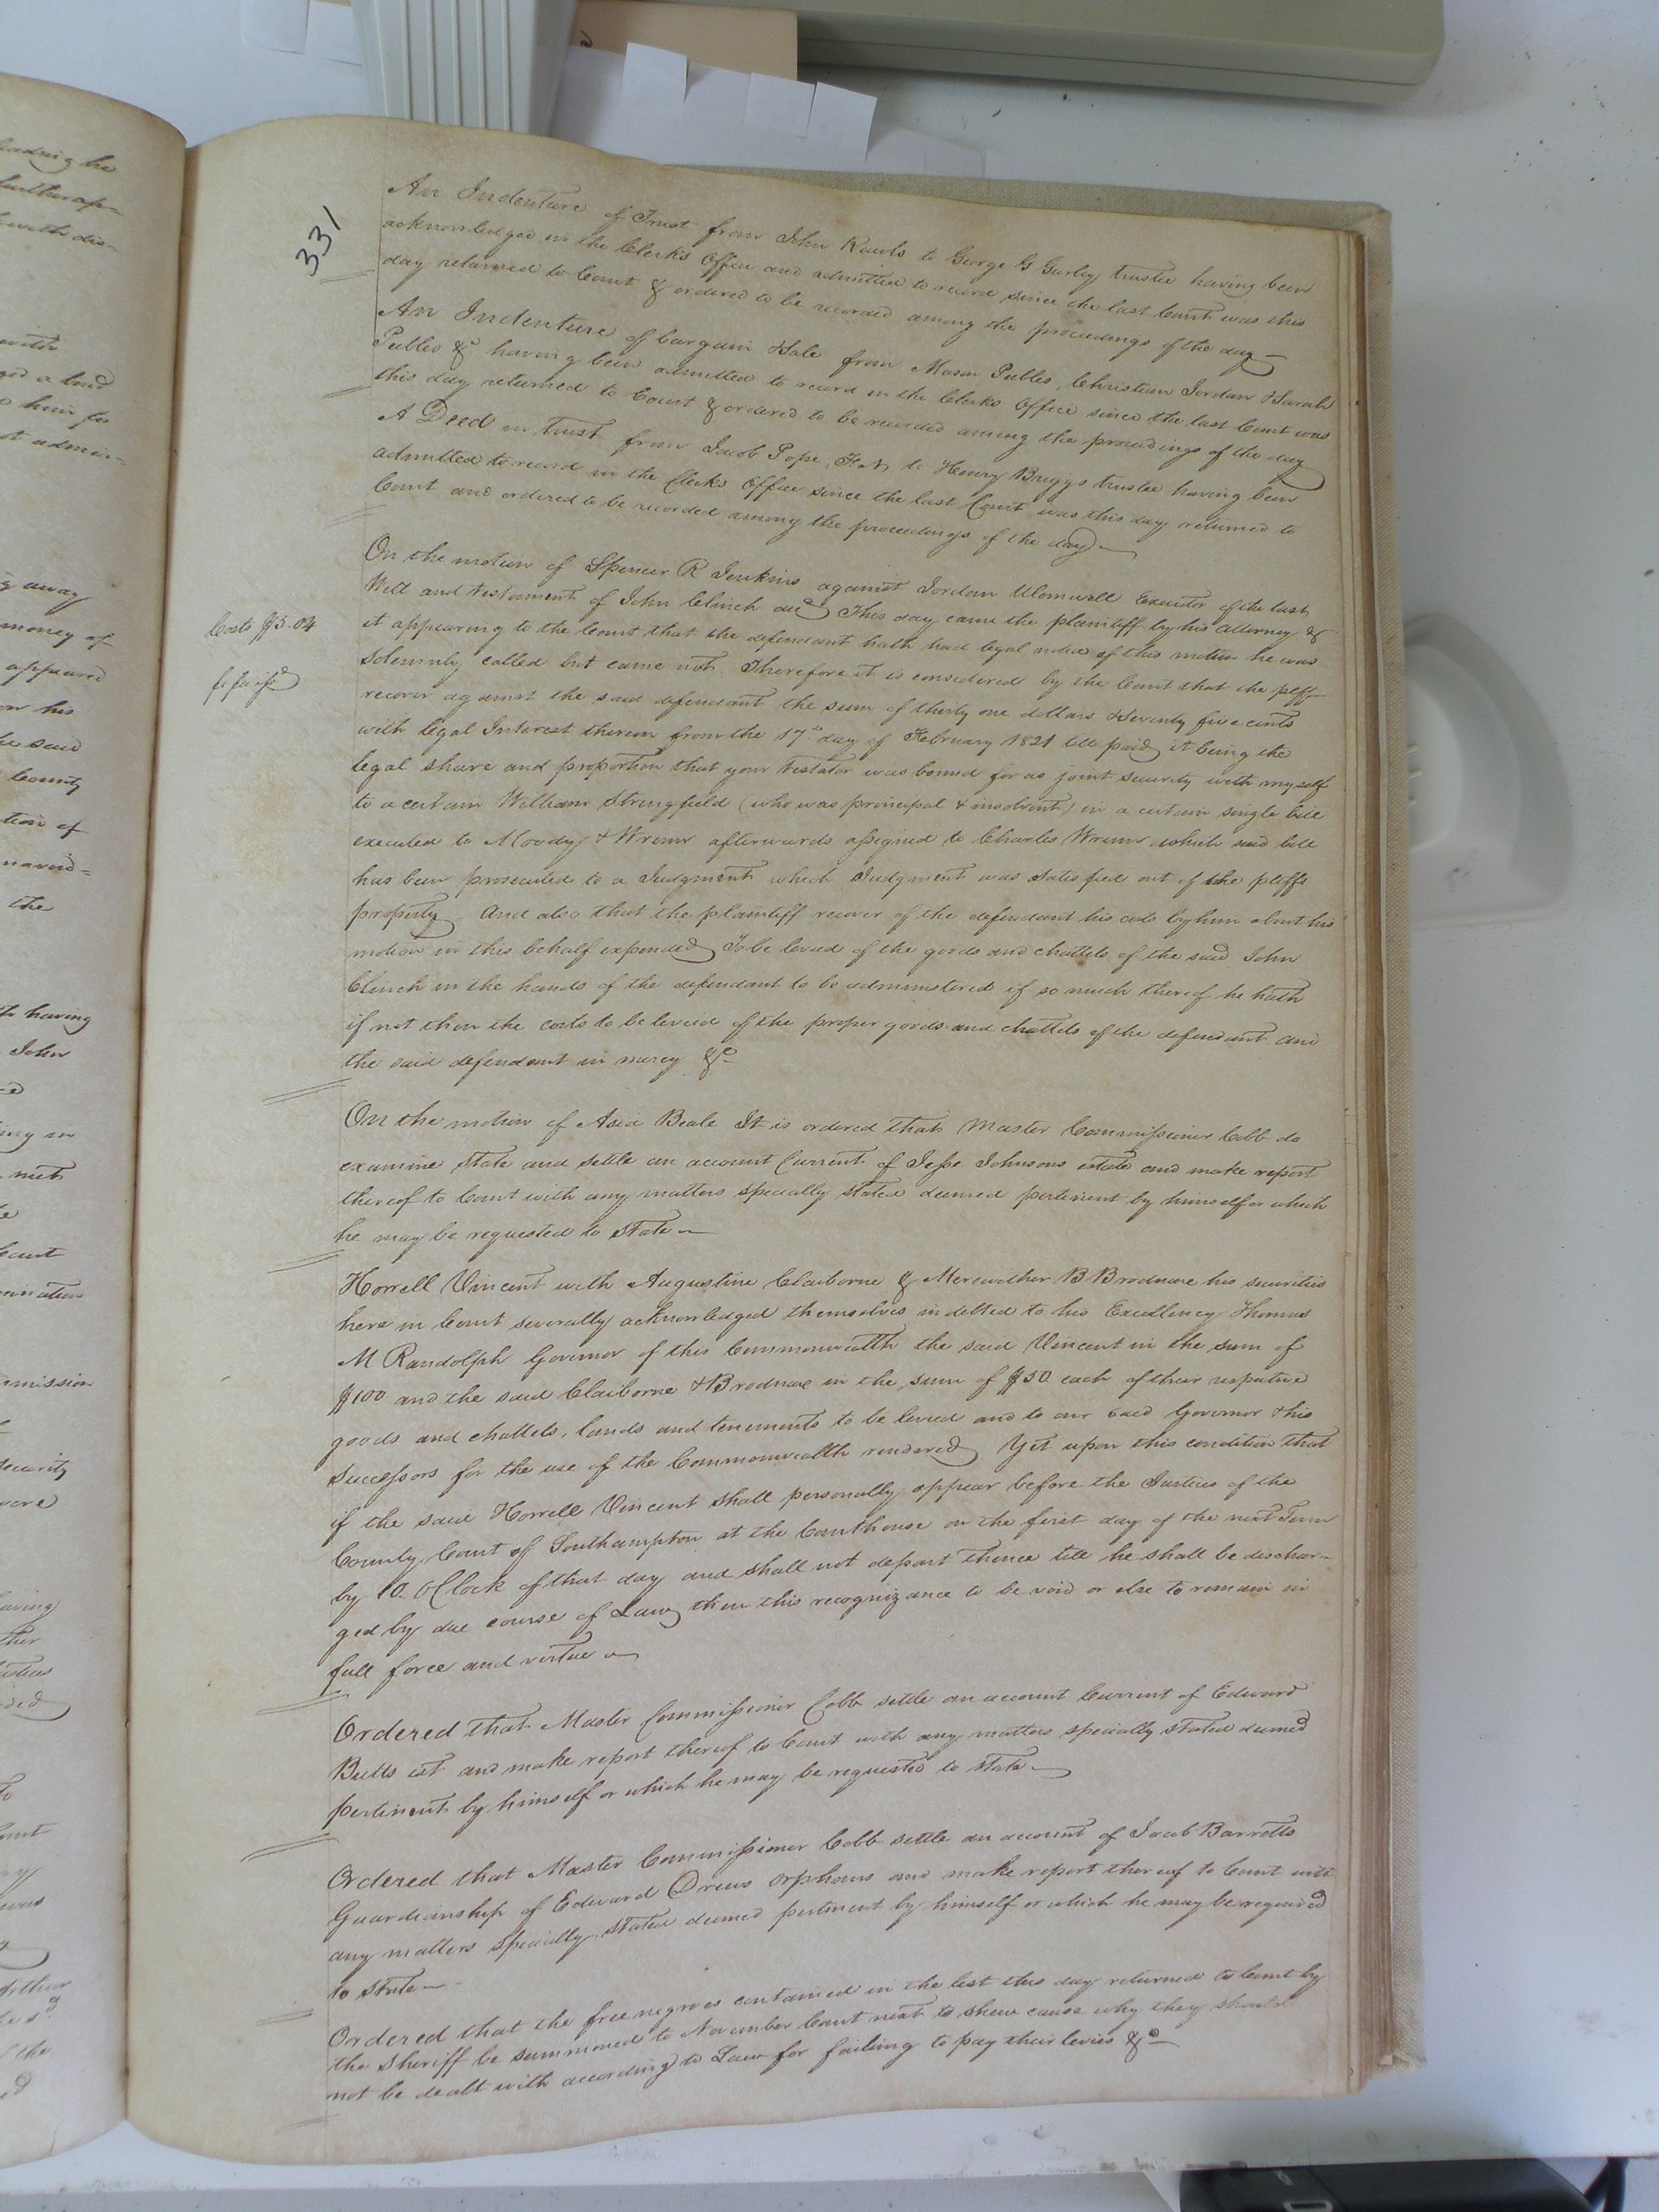 331
An Indenture of Trust from John Rawls to George G Gurley trustee having been
acknowledged in the Clerks Office and admitted to record since the last Court was this
day returned to Court & ordered to be recorded among the proceedings of the day
An Indenture of bargain & Sale from Mason Peebles, Christian Jordan & Sarah
Peebles &c having been admitted to record in the Clerks Office since the last Court was
this day returned to Court & ordered to be recorded among the proceedings of the day
A Deed in Trust from Jacob Pope, to Henry Briggs trustee having been
admitted to record in the Clerks Office since the last Court was this day returned to
Court and ordered to be recorded among the proceedings of the day
On the motion of Spencer R Jenkins against Jordan Womwell Executor of the last
Will and testament of John Clinch decd This day came the plaintiff by his attorney &
Costs $5.04
it appearing to the Court that the defendant hath had legal notice of this motion he was
solemnly called but came not. Therefore it is considered by the Court that the plff
fi fa issd
recover against the said defendant the sum of thirty one dollars & Seventy five cents
with legal Interest thereon from the 17th day of February 1821 till paid it being the
legal share and proportion that your testator was bound for as joint security with myself
to a certain William Stringfield (who was principal & insolvent) in a certain single bill
executed to Moody & Wrenn afterwards assigned to Charles Wrenn which said bill
has been prosecuted to a Judgment which Judgment was satisfied out of the plffs
property And also that the plaintiff recover of the defendant his costs by him about his
motion in this behalf expended To be levied of the goods and chattels of the said John
Clinch in the hands of the defendant to be administered if so much thereof he hath
if not then the costs to be levied of the proper goods and chattels of the defendant and
the said defendant in mercy &c
On the motion of Asia Beale It is ordered that Master Commissioner Cobb do
examine state and settle an account Current of Jesse Johnsons estate and make report
thereof to Court with any matters specially stated deemed pertinent by himself or which
he may be requested to state
Horrell Vincent with Augustine Claiborne & Merewether B Brodnax his securities
here in Court severally acknowledged themselves indebted to his Excellency Thomas
M Randolph Governor of this Commonwealth the said Vincent in the sum of
$100 and the said Claiborne & Brodnax in the sum of $50 each of their respective
goods and chattels, lands and tenements to be levied and to our said Governor & his
successors for the use of the Commonwealth rendered Yet upon this condition that
if the said Horrell Vincent shall personally appear before the Justices of the
County Court of Southampton at the Courthouse on the first day of the next Term
by 10. OClock of that day and shall not depart thence till he shall be dischar-
ged by due course of Law then this recognizance to be void or else to remain in
full force and virtue
Ordered that Master Commissioner Cobb settle an account Current of Edward
Butts est and make report thereof to Court with any matters specially stated deemed
pertinent by himself or which he may be requested to state
Ordered that Master Commissioner Cobb settle an account of Jacob Barretts
Guardianship of Edward Drews orphans and make report thereof to Court with
any matters specially stated deemed pertinent by himself or which he may be required
to state
Ordered that the free negroes contained in the list this day returned to Court by
the Sheriff be summoned to November Court next to shew cause why they should
not be dealt with according to Law for failing to pay their levies &c